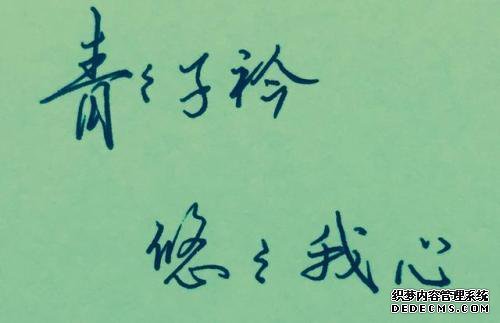 青々子衿
悠々我心
织梦内容管理系统
DEDECMS.COM